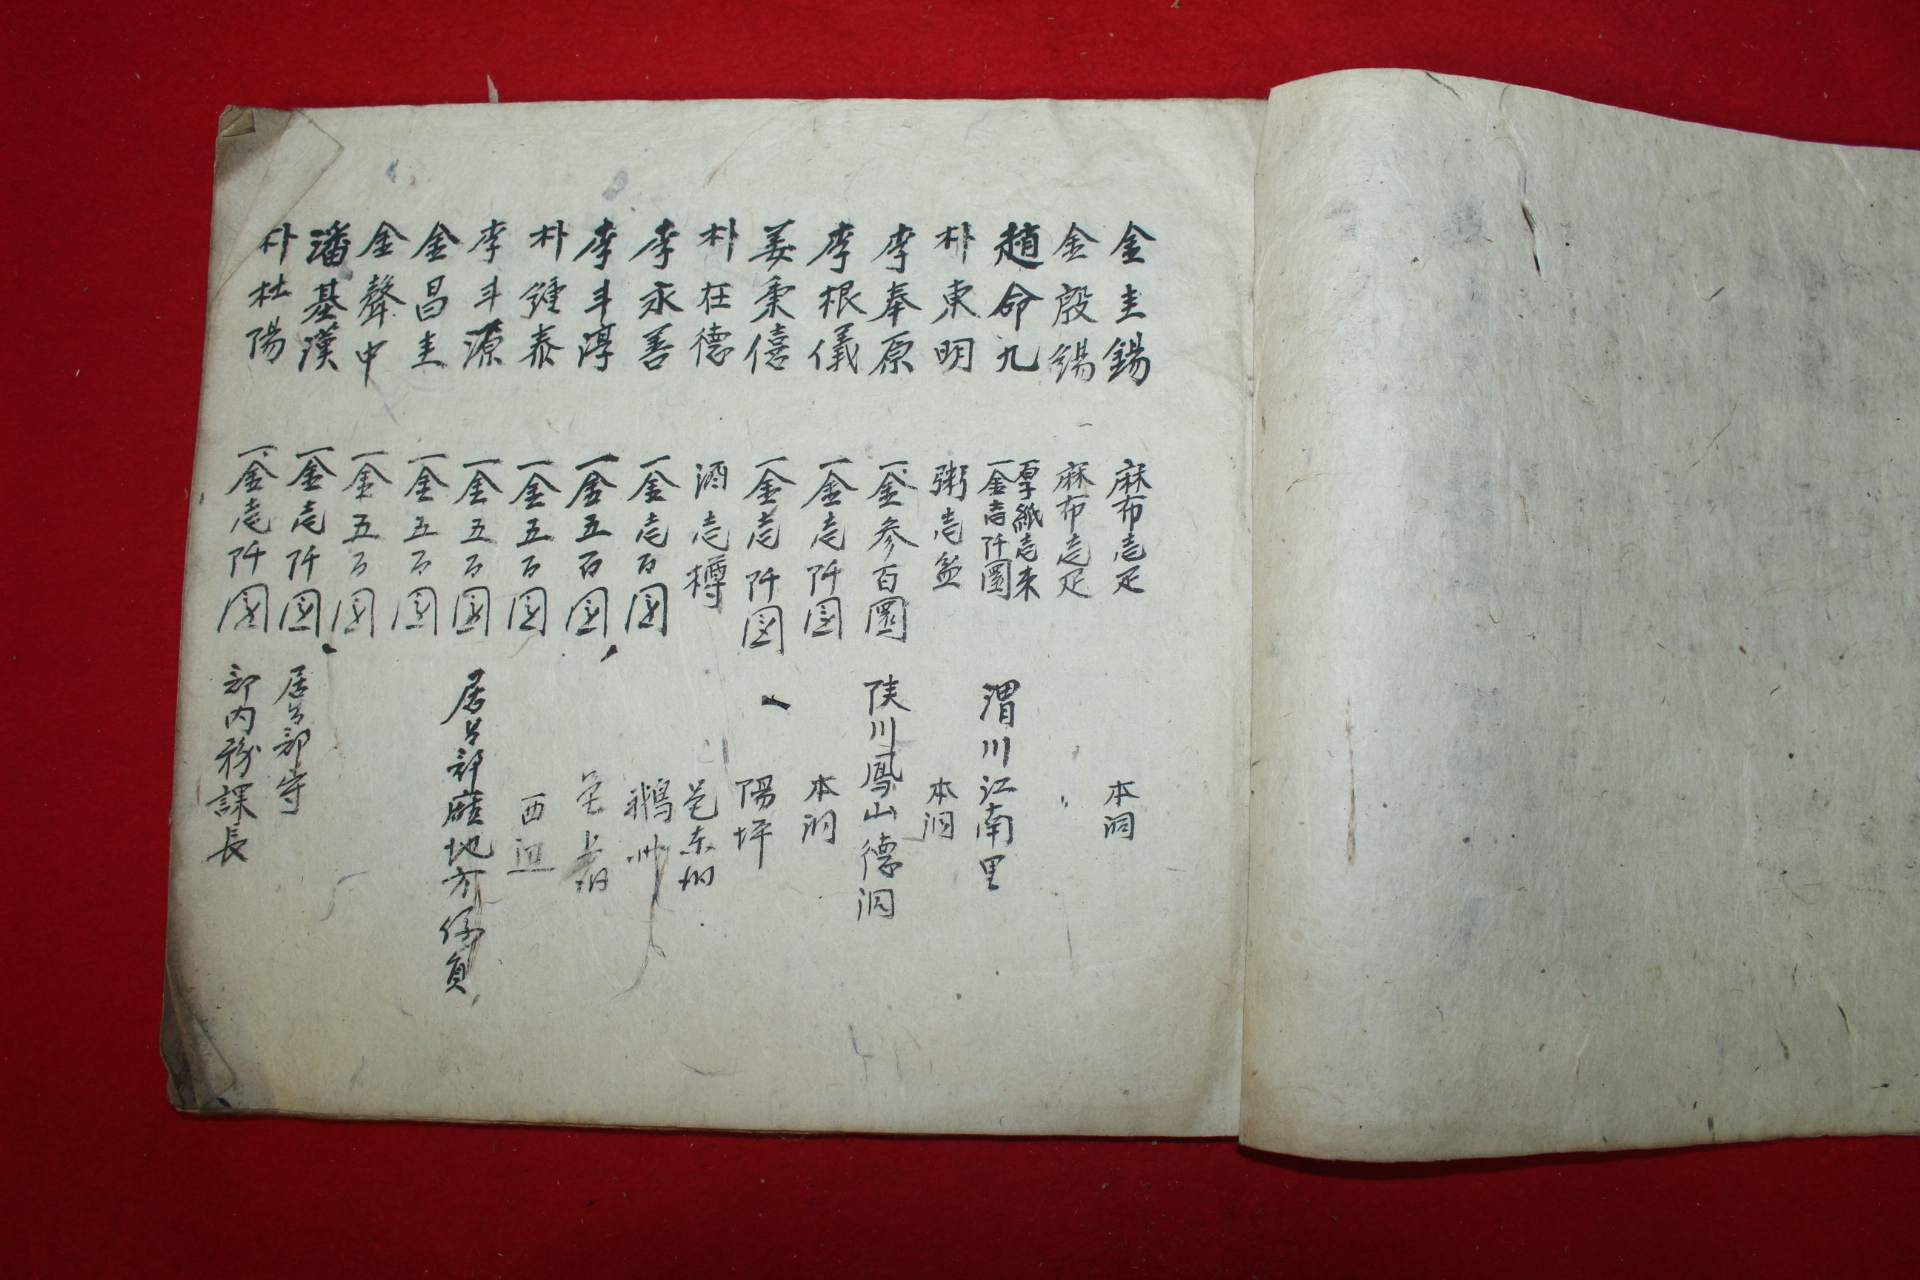 金圭錫 麻布壱疋 本洞
金殷錫 麻布壱疋
趙命九 厚紙壱束 一金壱阡圜 渭川江南里
朴東明 粥壱盆 本洞
李奉原 一金参百圜 陜川鳳山德洞
李根儀 一金壱阡圓 本洞
姜秉僖 一金壱阡圓 陽坪
朴在德 酒壱樽 邑東
李永善 一金壱百圓
李斗淳 一金五百圓
朴鍾泰 一金五百圓 西辺
李斗源 一金五百圓 居昌郡庭地方係員
金昌圭 一金五百圓
金聲中 一金五百圓
潘基漢 一金壱阡圓 居昌郡守
朴杜陽 一金壱阡圓 郡內務課長